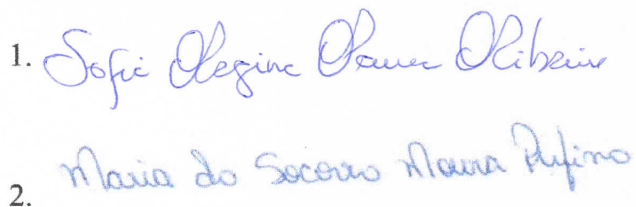 1. Sofia Regina Ribeiro
2. Maria do Socorro Moura Rufino